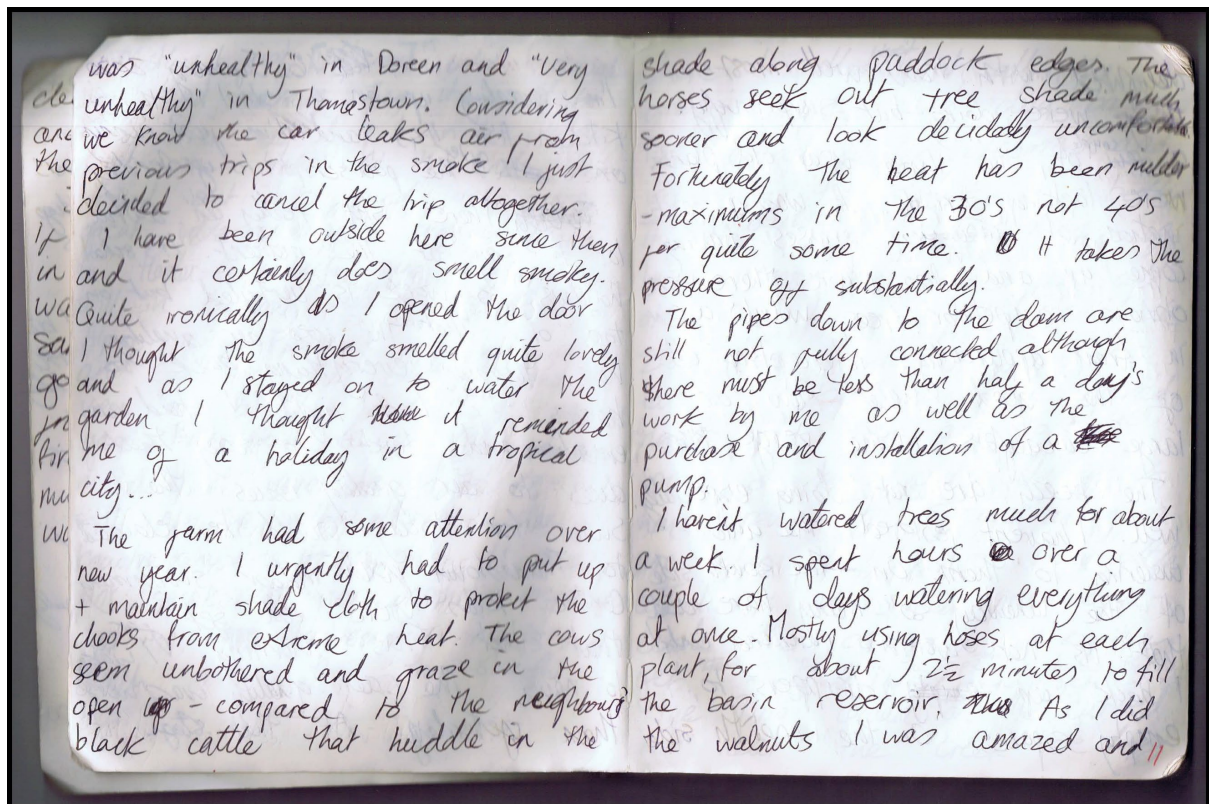 was "unhealthy" in Doreen and "Very
unhealthy" in Thomastown. Considering
we know the car leaks air from
previous trips in the smoke I just
decided to cancel the trip altogether.
I have been outside here since then
and it certainly does smell smoky.
Quite ironically as I opened the door
I thought the smoke smelled quite lovely
and as I stayed on to water the
garden I thought it reminded
me of a holiday in a tropical
city...
The farm had some attention over
new year. I urgently had to put up
+ maintain shade cloth to protect the
chooks from extreme heat. The cows
seem unbothered and graze in the
open - compared to the neighbours
black cattle that huddle in the
shade along paddock edges. The
horses seek out tree shade much
sooner and look decidedly uncomfortable.
Fortunately the heat has been milder
- maximums in the 30's not 40's
for quite some time. It takes the
pressure off substantially.
The pipes down to the dam are
still not fully connected although
there must be less than half a day's
work by me as well as the
purchase and installation of a
pump.
I haven't watered trees much for about
a week. I spent hours over a
couple of days watering everything
at once. Mostly using hoses, at each
plant, for about 2½ minutes to fill
the basin reservoir. As I did
the walnuts I was amazed and
11